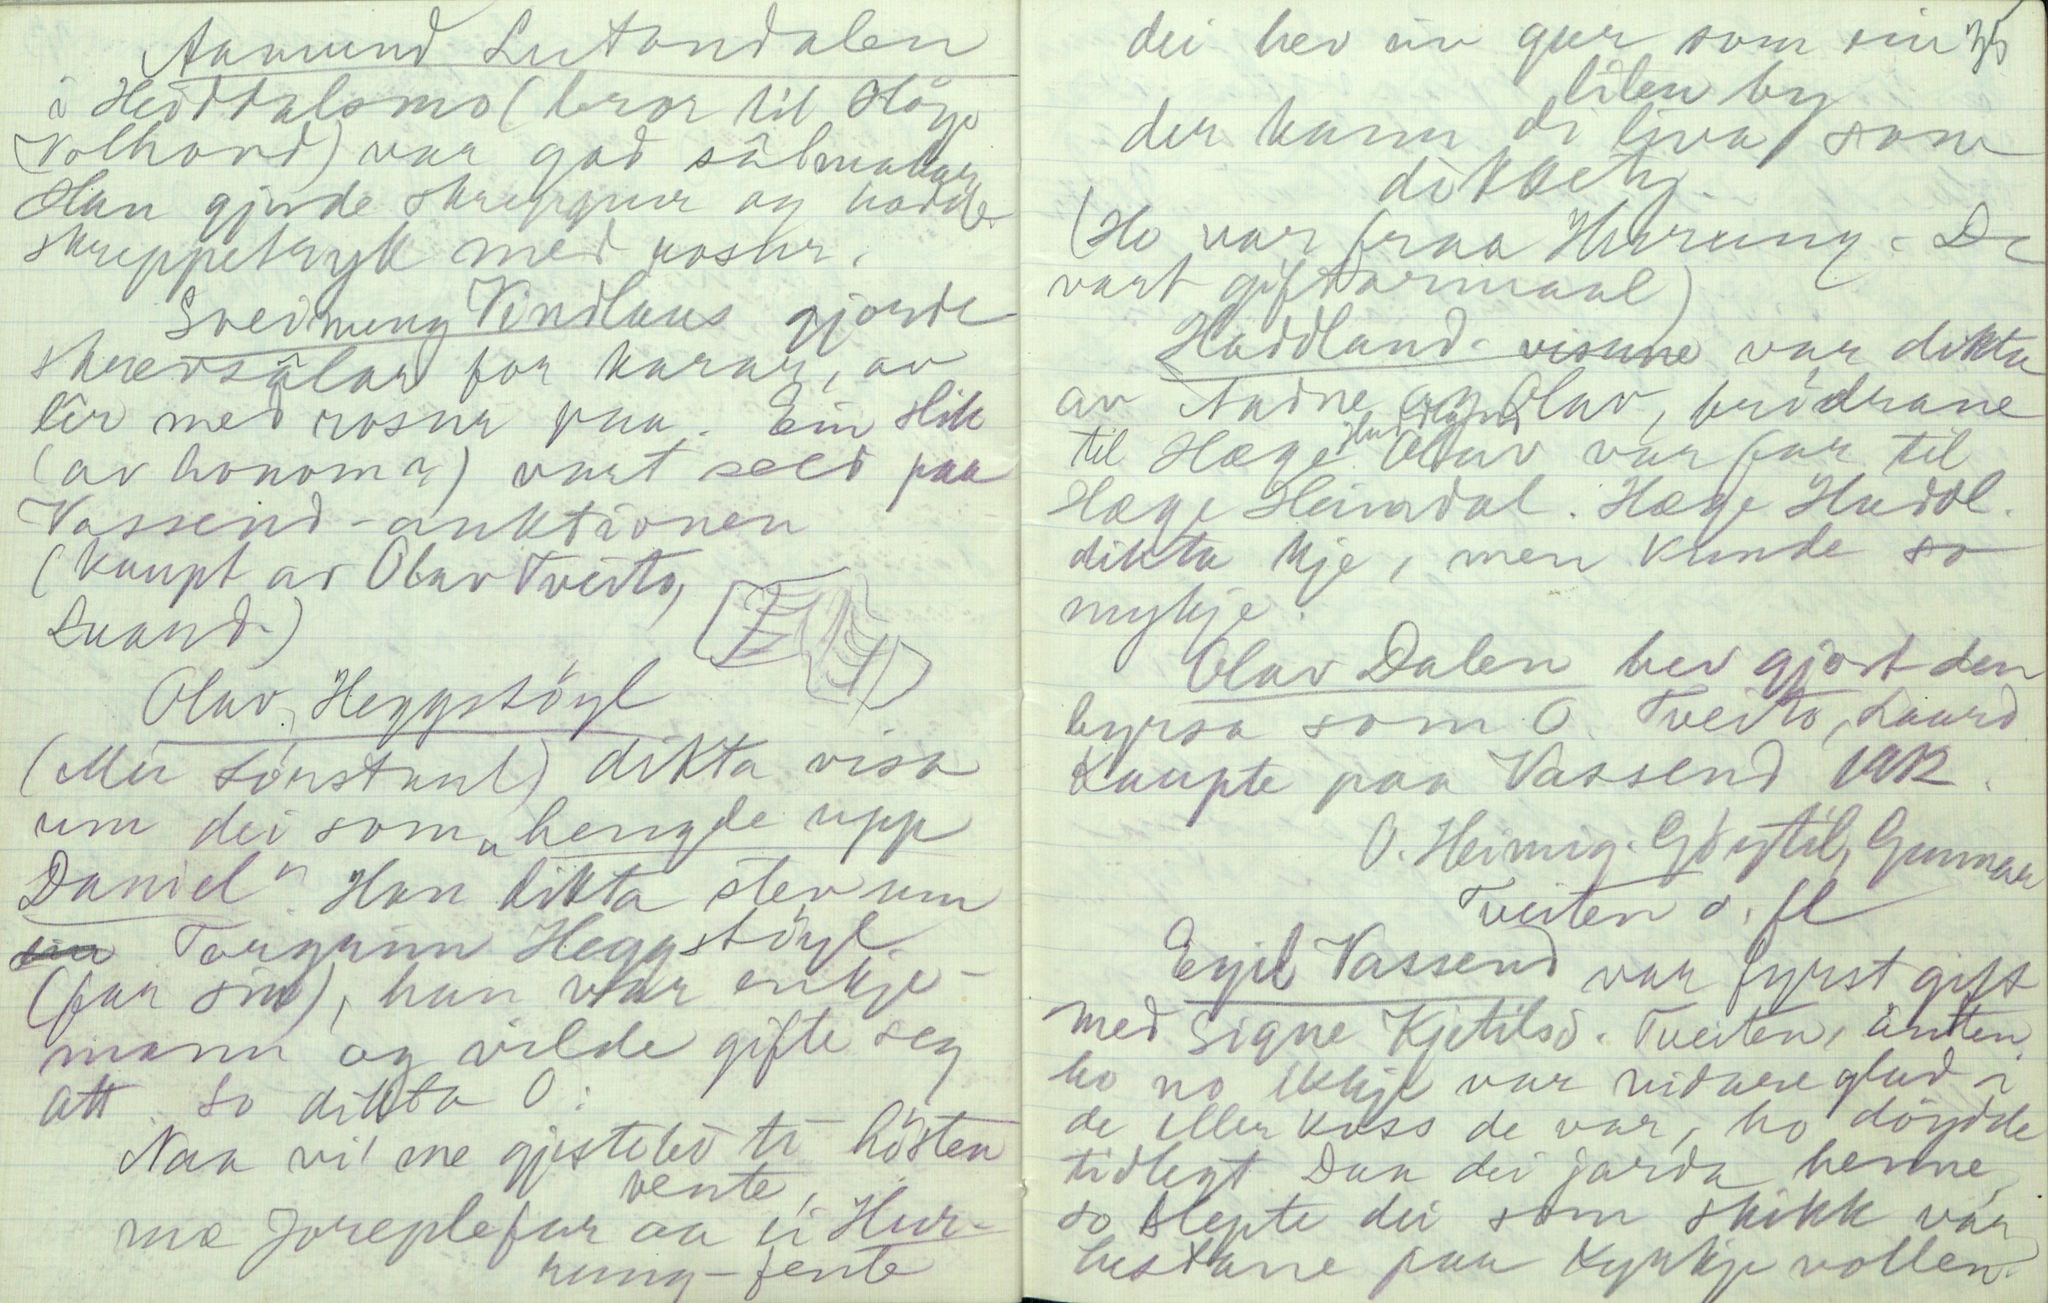 Aamund Lutandalen
i Heiddalsmo (bror til Höge
Volhovd) var god sålmakar
Han gjorde skreppur og hadde
skreppetryk med rosur.
Sveinung Vindlaus gjorde
skredsålar for karar, av
lêr med rosur paa. Ein slik
(av honom?) vart seld paa
Vassend-auktionen
(kaupt av Olav Tveito,
Laurd.)
Olav Heggstöyl
(Mei Sönstaul) dikta visa
um dei som "hengde upp
Daniel". Han dikta stev um
Torgrim Heggstöyl
(far sin), han var enkje-
mann og vilde gifte seg
att. So dikta O:
Naa vi' me gjestebö ti hösten
vente,
mæ Joreplefur aa ei Hur-
rung-fente
dei hev ein gar som ein 35
liten by
der kann di liva som
dikkety.
(Ho var fraa Hurung. De
vart giftarmaal)
Haddland-visune var dikta
av Aadne og Olav, brödrane
til Hæge Haddland Olav var far til
Hæge Heimdal. Hæge Haddl.
dikta kje, men kunde so
mykje.
Olav Dalen hev gjort den
byrsa som O. Tveito, Laurd
kaupte paa Vassend 1912.
O. Heimig. Göytil, Gunnar
Tveiten o. fl
Egil Vassend var fyrst gift
med Signe Kjetilsd. Tveiten, anten
ho no ikkje var vidare glad i
de eller koss de var, ho döydde
tidlegt. Daa dei jorda henne,
so slepte dei som skikk var
hestane paa Kyrkjevollen.